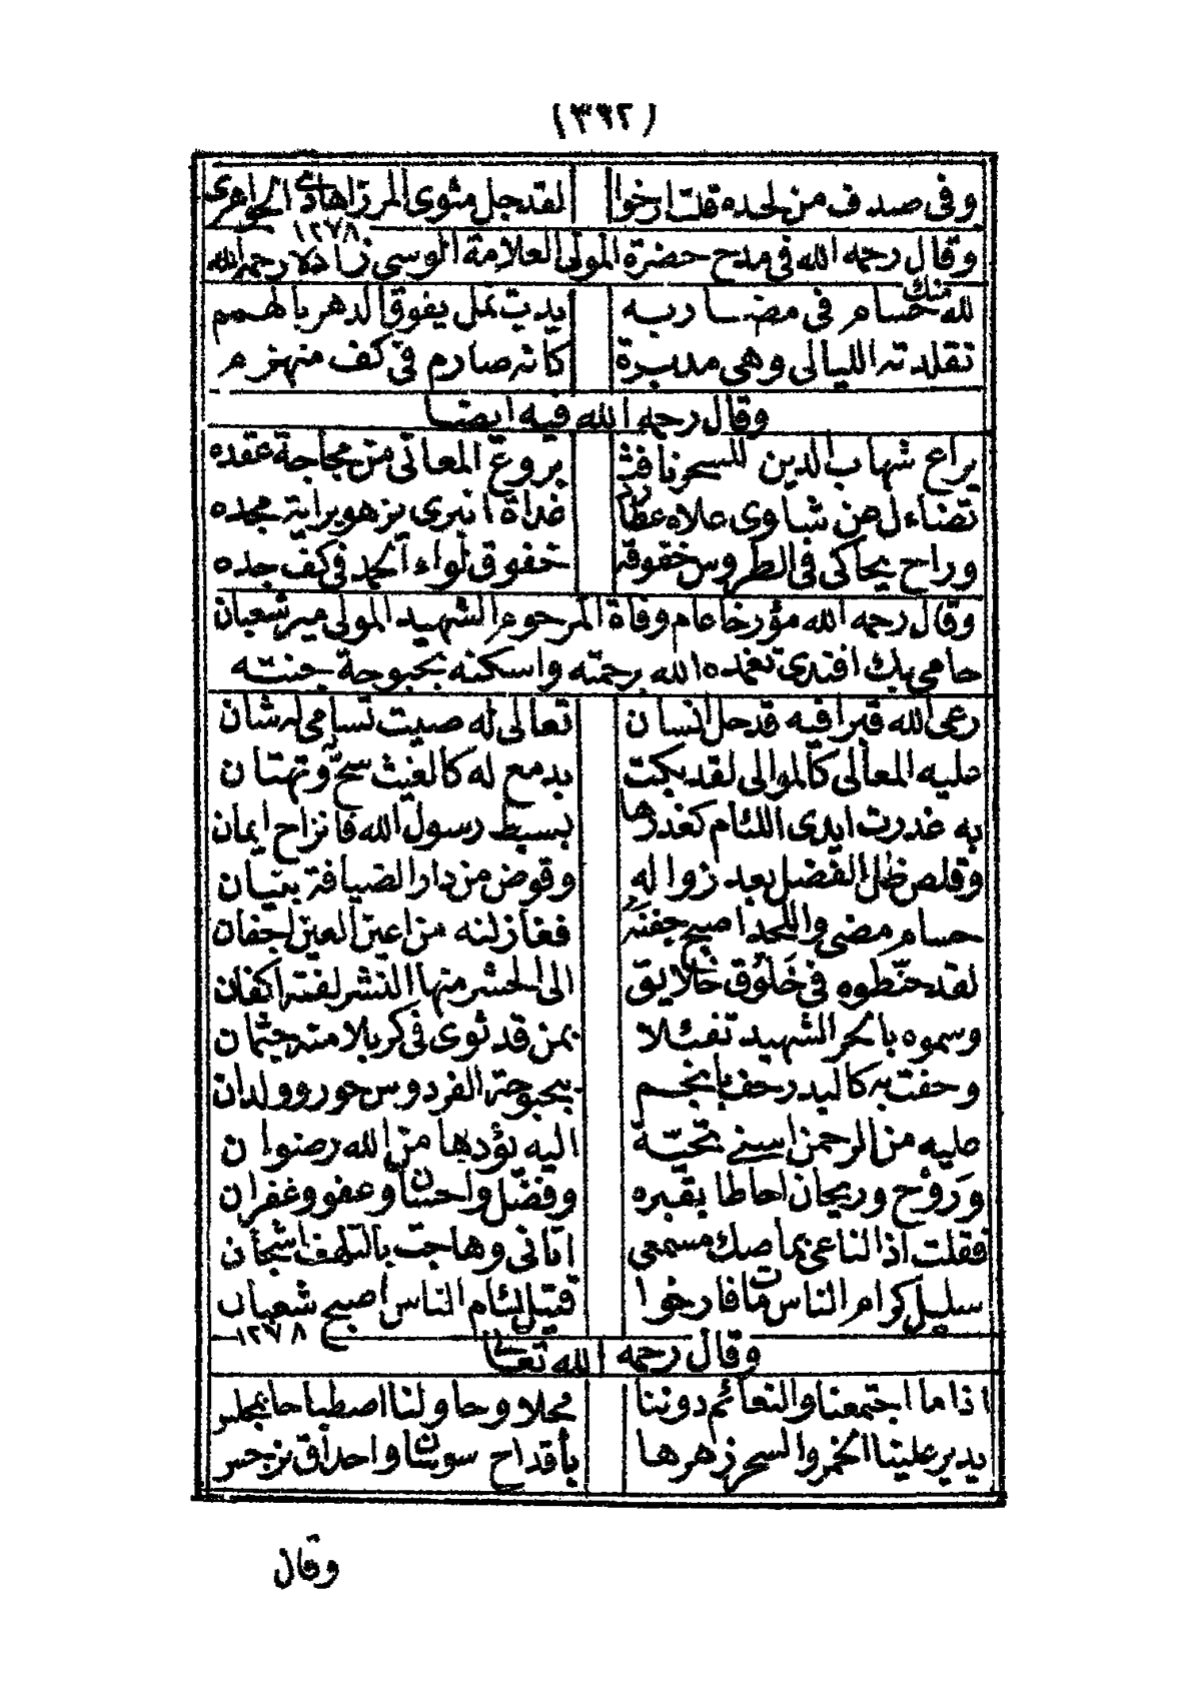 (٣٩٢)
وفى صدف من لحده قلت ارخوا لقد جل مثوى المرزا هادى الجواهرى
١٢٧٨
وقال رحمه الله فى مدح حضرة المولى العلامة الوسى زاده لا رحمه الله
لله منك حسام فى مضاربه يديت تمل يفوق الدهر بالهمم
تقلدته الليالى وهى مدبرة كانه صارم فى كف منهزم
وقال رحمه الله فيه ايضا
يراع شهاب الدين للسحر نافث يروع المعانى من مجاجة عقده
تضاءل عن شاوى علاه عطارد غداة انبرى يزهو براية مجده
وراح يحاكى فى الطروس خفوقه خفوق لواء الحمد فى كف جده
وقال رحمه الله مؤرخا عام وفاة المرحوم الشهيد المولى مير شعبان
حامى بك افندى تغمده الله برحمته واسكنه بحبوحة جنته
رعى الله قبرا فيه قد حل انسان تعالى له صيت تسامى له شان
عليه المعالى كالموالى لقد بكت بدمع له كالغيث سح وتهتان
به غدرت ايدى اللئام كغدرها بسبط رسول الله فانزاح ايمان
وقلص ظل الفضل بعد زواله وقوض من دار الضيافة بنيان
حسام مضى واللحد اصبح جفنه فغازلنه من اعين العين اجفان
لقد حنطوه فى خلوق خلايق الى الحشر منها النشر لفته اكفان
وسموه بالحر الشهيد تفئلا بمن قد ثوى فى كربلا منه جثمان
وحفت به كالبدر حف بانجم ببحبوحة الفردوس حور وولدان
عليه من الرحمن اسنى تحية اليه يؤديها من الله رضوان
وروح وريحان احاطا بقبره وفضل واحسان وعفو وغفران
فقلت اذ الناعى بما صك مسمعى اتانى وهاجت بالتلهف اشجان
سليل كرام الناس مات فارخوا قتيل لئام الناس اصبح شعبان
١٢٧٨
وقال رحمه الله تعالى
اذا ما اجتمعنا والنعائم دوننا محلا وحاولنا اصطباحا بمجلس
يدير علينا الخمر والسحر زهرها باقداح سوسان واحداق نرجس
وقال